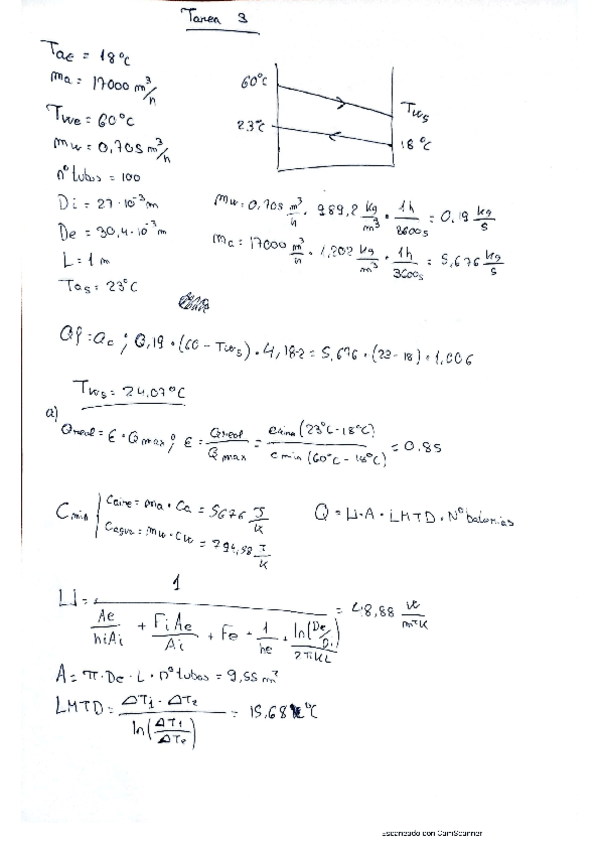 Tarea 3
Tae = 18°C
ma = 17000 m³/h
Twe = 60°C
mw = 0,705 m³/h
nº tubos = 100
Di = 27·10⁻³ m
De = 30,4·10⁻³ m
L = 1 m
Tas = 23°C
60°C
23°C
Tws
18°C
mw = 0,705 m³/h · 989,2 kg/m³ · 1h/3600s = 0,19 kg/s
ma = 17000 m³/h · 1,202 kg/m³ · 1h/3600s = 5,676 kg/s
Qf = Qc ; 0,19 · (60 - Tws) · 4,182 = 5,676 · (23 - 18) · 1,006
Tws = 24.07°C
a)
Qreal = ε · Qmax ; ε = Qreal/Qmax = (23°C - 18°C)/cmin (60°C - 18°C) = 0.85
Cmin
Caire = ma · Ca = 5676 J/K
Cagua = mw · Cw = 794,58 J/K
Q = U · A · LMTD · Nº baterías
U = 1/(Ae/hiAi + FiAe/Ai + Fe + 1/he + ln(De/Di)/2πKL) = 48,88 W/m²K
A = π · De · L · nº tubos = 9,55 m²
LMTD = ΔT1 - ΔT2/ln(ΔT1/ΔT2) = 15,68 °C
Escaneado con CamScanner